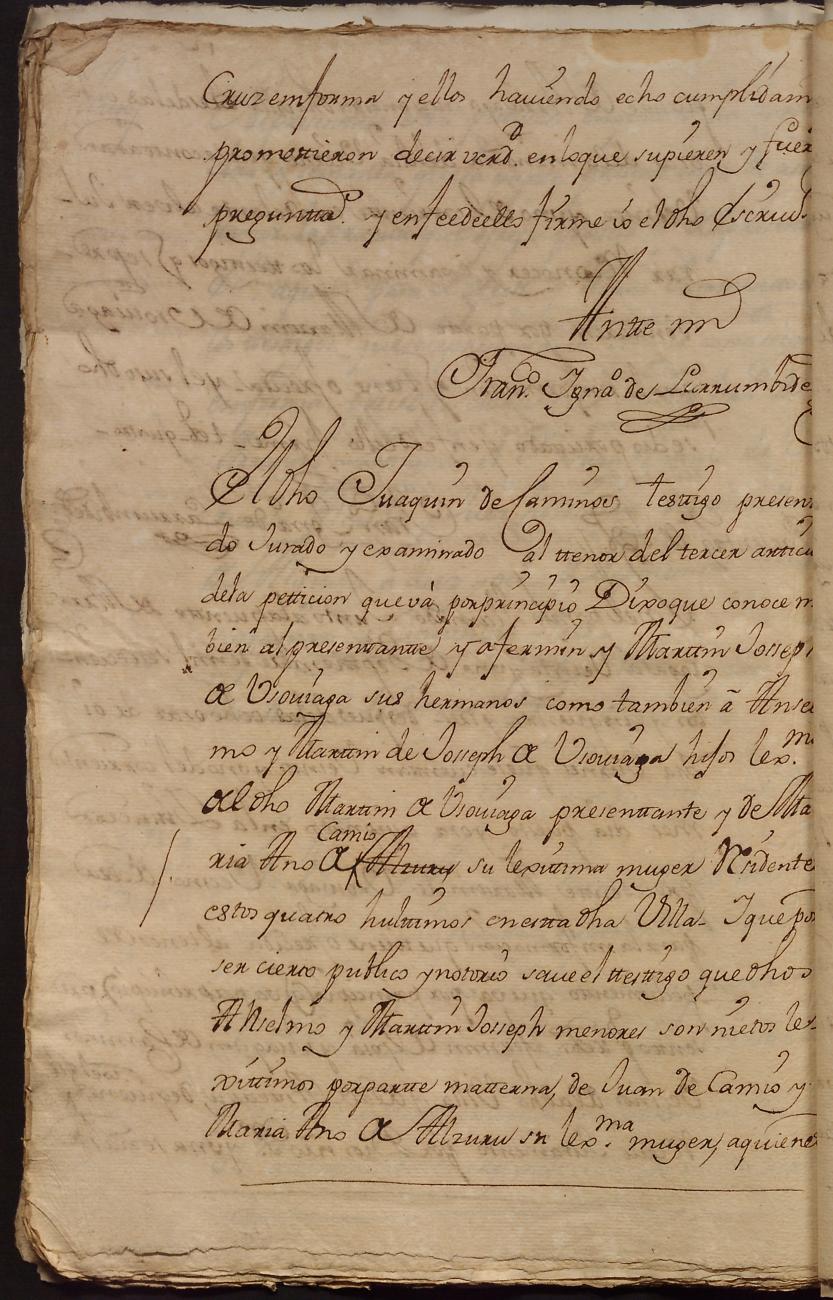 Cruz em forma y ellos haviendo echo cumplidam
promettieron decir verd.ᵈ en loque supieren y fuer
preguntad.ˢ y enfeedeello firme io el dho Escriu.ⁿ
Antte mi
Fran.ᶜᵒ Ygnᵒ de Larrumbide
El dho Juaquin de Caminos testtigo presen
do Jurado y examinado al ttenor del tercer articu
dela petticion que vá por principio Dixo que conoce m
bien al presenttantte y a fermin y Marttin Joseph
de Usoviaga sus hermanos como tambien ã Ansel
mo y Marttin de Joseph de Usoviaga hijos lex.ᵐᵒˢ
del dho Marttin de Usoviaga presenttante y de Ma
ria Ana de Camio Alzuru su lexittima muger Residente
estos quatro hulttimos en estta dha Villa- I que por
ser cierto publico y notorio save el ttesttigo que dhos
Anselmo y Marttin Joseph menores son nietos le-
xittimos por partte matterna, de Juan de Camio y
Maria Ana de Alzuru su lex.ᵐᵃ muger, a quienes